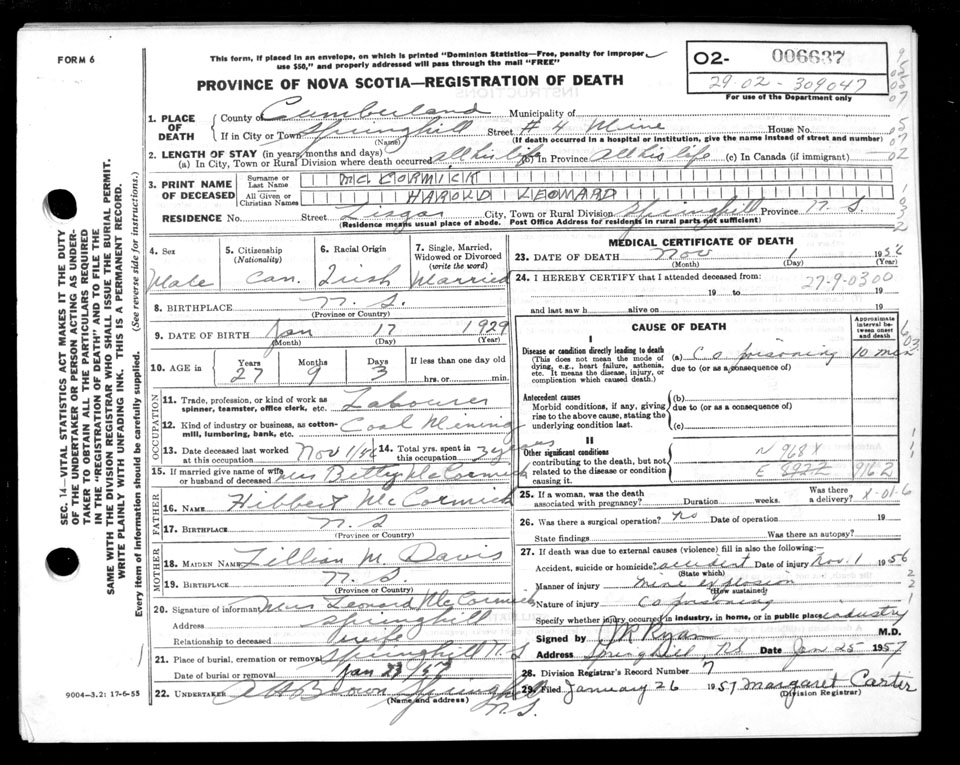 FORM 6
This form, if placed in an envelope, on which is printed "Dominion Statistics—Free, penalty for improper use $50," and properly addressed will pass through the mail "FREE"
02- 006637
29 02 - 309047
For use of the Department only
PROVINCE OF NOVA SCOTIA—REGISTRATION OF DEATH
1. PLACE OF DEATH
County of Cumberland Municipality of
If in City or Town Springhill Street #4 Mine House No.
(Name) (If death occurred in a hospital or institution, give the name instead of street and number)
2. LENGTH OF STAY (in years, months and days)
(a) In City, Town or Rural Division where death occurred all his life (b) In Province All his life (c) In Canada (if immigrant)
3. PRINT NAME OF DECEASED
Surname or Last Name MC CORMICK
All Given or Christian Names HAROLD LEONARD
RESIDENCE No. Street Lisgar City, Town or Rural Division Springhill Province N.S.
(Residence means usual place of abode. Post Office Address for residents in rural parts not sufficient)
4. Sex Male
5. Citizenship (Nationality) Can.
6. Racial Origin Irish
7. Single, Married, Widowed or Divorced (write the word) Married
8. BIRTHPLACE N.S.
(Province or Country)
9. DATE OF BIRTH Jan 17 1929
(Month) (Day) (Year)
10. AGE in Years 27 Months 9 Days 3 If less than one day old hrs. or min.
OCCUPATION
11. Trade, profession, or kind of work as spinner, teamster, office clerk, etc. Labourer
12. Kind of industry or business, as cotton-mill, lumbering, bank, etc. Coal Mining
13. Date deceased last worked at this occupation Nov 1/56
14. Total yrs. spent in this occupation 3 years
15. If married give name of wife or husband of deceased Mrs Betty McCormick
FATHER
16. NAME Hibbert McCormick
17. BIRTHPLACE N.S
(Province or Country)
MOTHER
18. MAIDEN NAME Lillian M. Davis
19. BIRTHPLACE N.S.
(Province or Country)
20. Signature of informant Mrs Leonard McCormick
Address Springhill
Relationship to deceased wife
21. Place of burial, cremation or removal Springhill N.S
Date of burial or removal Jan 23/57
22. UNDERTAKER A H Brown Springhill N.S.
(Name and address)
9004—3.2: 17-6-55
MEDICAL CERTIFICATE OF DEATH
23. DATE OF DEATH Nov 1 1956
(Month) (Day) (Year)
24. I HEREBY CERTIFY that I attended deceased from 27-9-0300
19 to 19
and last saw h alive on 19
CAUSE OF DEATH
Approximate interval between onset and death
I
Disease or condition directly leading to death
(This does not mean the mode of dying, e.g., heart failure, asthenia, etc. It means the disease, injury, or complication which caused death.)
(a) CO poisoning 10 min
due to (or as a consequence of)
Antecedent causes
Morbid conditions, if any, giving rise to the above cause, stating the underlying condition last.
(b)
due to (or as a consequence of)
(c)
II
Other significant conditions
contributing to the death, but not related to the disease or condition causing it.
N 968X
E 962
25. If a woman, was the death associated with pregnancy? Duration weeks. Was there a delivery? X-01-6
26. Was there a surgical operation? no Date of operation 19
State findings Was there an autopsy?
27. If death was due to external causes (violence) fill in also the following:—
Accident, suicide or homicide? accident Date of injury Nov. 1 1956
(State which)
Manner of injury mine explosion
(How sustained)
Nature of injury CO poisoning
Specify whether injury occurred in industry, in home, or in public place industry
Signed by J M Ryan M.D.
Address Springhill, NS Date Jan 25 1957
28. Division Registrar's Record Number 7
29. Filed January 26 1957 Margaret Carter
(Division Registrar)
SEC. 14—VITAL STATISTICS ACT MAKES IT THE DUTY OF THE UNDERTAKER OR PERSON ACTING AS UNDERTAKER TO OBTAIN ALL THE PARTICULARS REQUIRED IN THE "REGISTRATION OF DEATH" AND TO FILE THE SAME WITH THE DIVISION REGISTRAR WHO SHALL ISSUE THE BURIAL PERMIT.
WRITE PLAINLY WITH UNFADING INK. THIS IS A PERMANENT RECORD.
Every item of information should be carefully supplied. (See reverse side for instructions.)